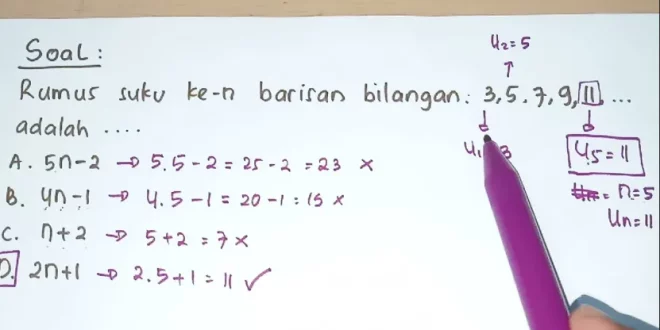 U2=5
Soal:
Rumus suku ke-n barisan bilangan: 3, 5, 7, 9, 11, ...
adalah ....
A. 5n-2 → 5.5-2 = 25-2 = 23 x
B. 4n-1 → 4.5-1 = 20-1 = 15 x
C. n+2 → 5+2 = 7 x
D. 2n+1 → 2.5+1 = 11 ✓
3
U5=11
= n=5
Un=11